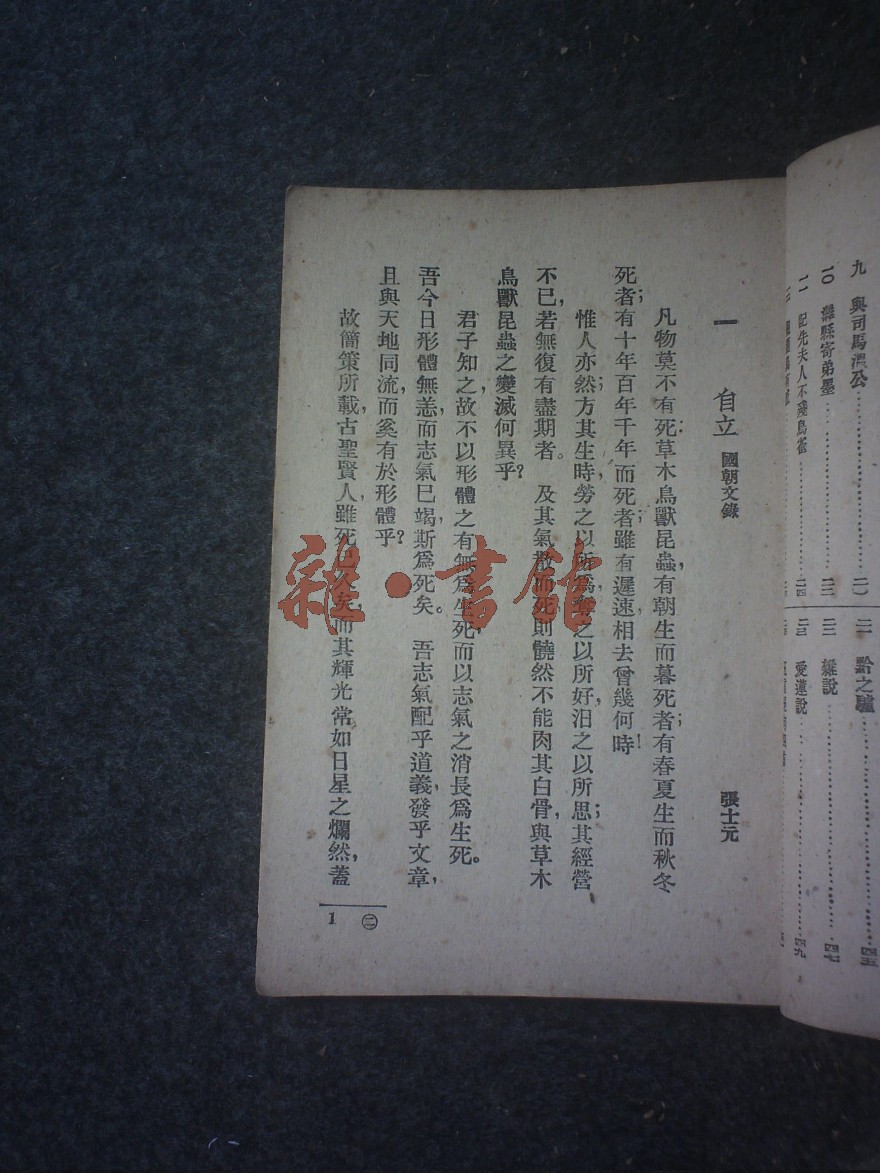 九 與司馬溫公
一〇 濰縣寄弟墨 二二
一一 記先夫人不殘鳥雀 二四
二一 黔之驢 四五
二二 雜說 四七
二三 愛蓮說 四九
一 自立 國朝文錄 張士元
凡物莫不有死；草木鳥獸昆蟲，有朝生而暮死者；有春夏生而秋冬
死者；有十年百年千年而死者，雖有遲速，相去曾幾何時！
惟人亦然；方其生時，勞之以所爲，奪之以所好，汨之以所思；其經營
不已，若無復有盡期者。及其氣散而死，則髐然不能肉其白骨，與草木
鳥獸昆蟲之變滅何異乎？
君子知之，故不以形體之有無爲生死，而以志氣之消長爲生死。
吾今日形體無恙，而志氣已竭，斯爲死矣。吾志氣配乎道義，發乎文章，
且與天地同流，而奚有於形體乎？
故簡策所載，古聖賢人，雖死已久矣，而其輝光常如日星之爛然，蓋
㊁ 1
雜·書館